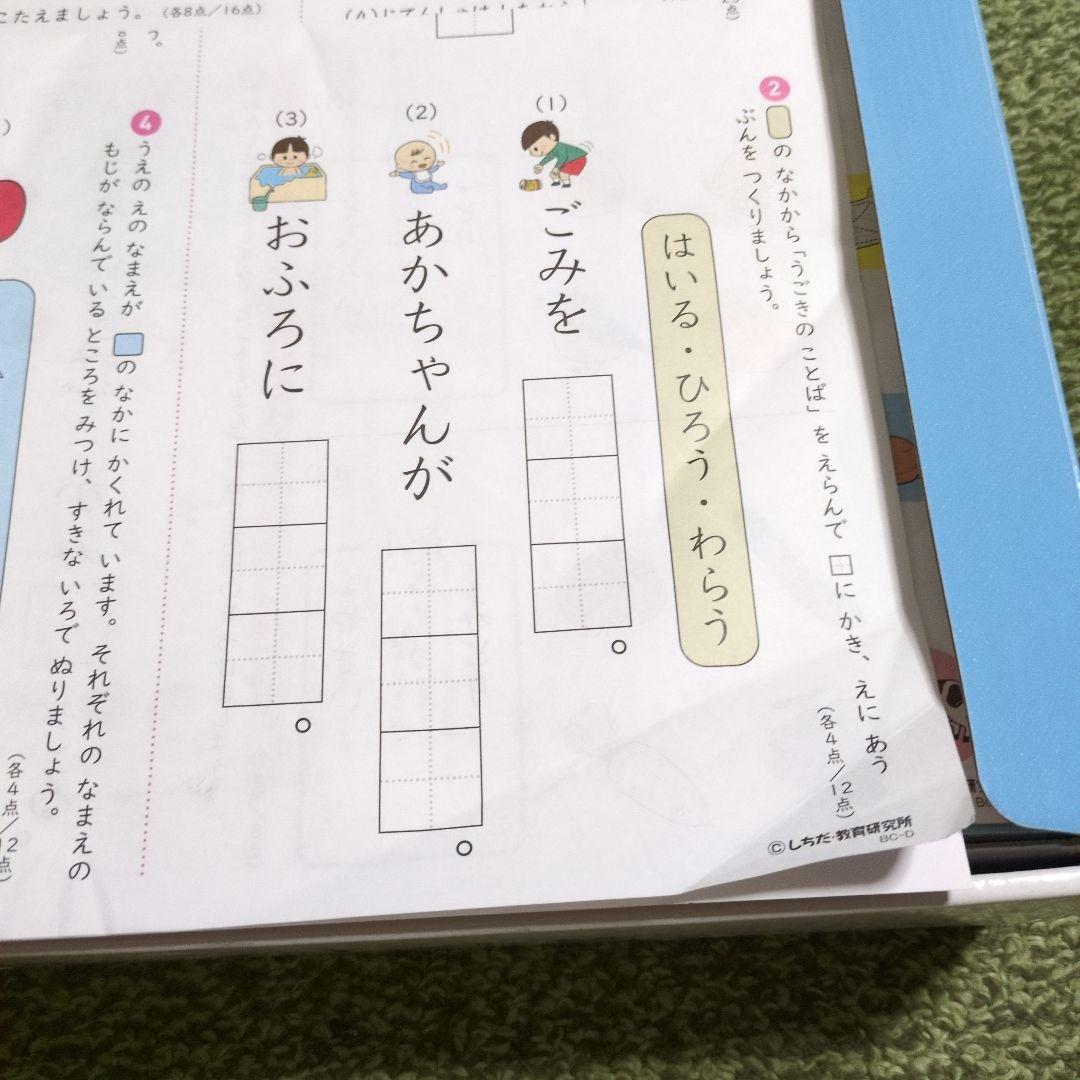 こたえましょう。(各8点/16点)
2
の なかから「うごきの ことば」を えらんで に かき、えに あう
ぶんを つくりましょう。
(各4点/12点)
はいる・ひろう・わらう
(1)
ごみを
。
(2)
あかちゃんが
。
(3)
おふろに
。
4
うえの えの なまえが の なかに かくれて います。それぞれの なまえの
もじが ならんで いる ところを みつけ、すきな いろで ぬりましょう。
(各4点/12点)
©しちだ・教育研究所
BC-D